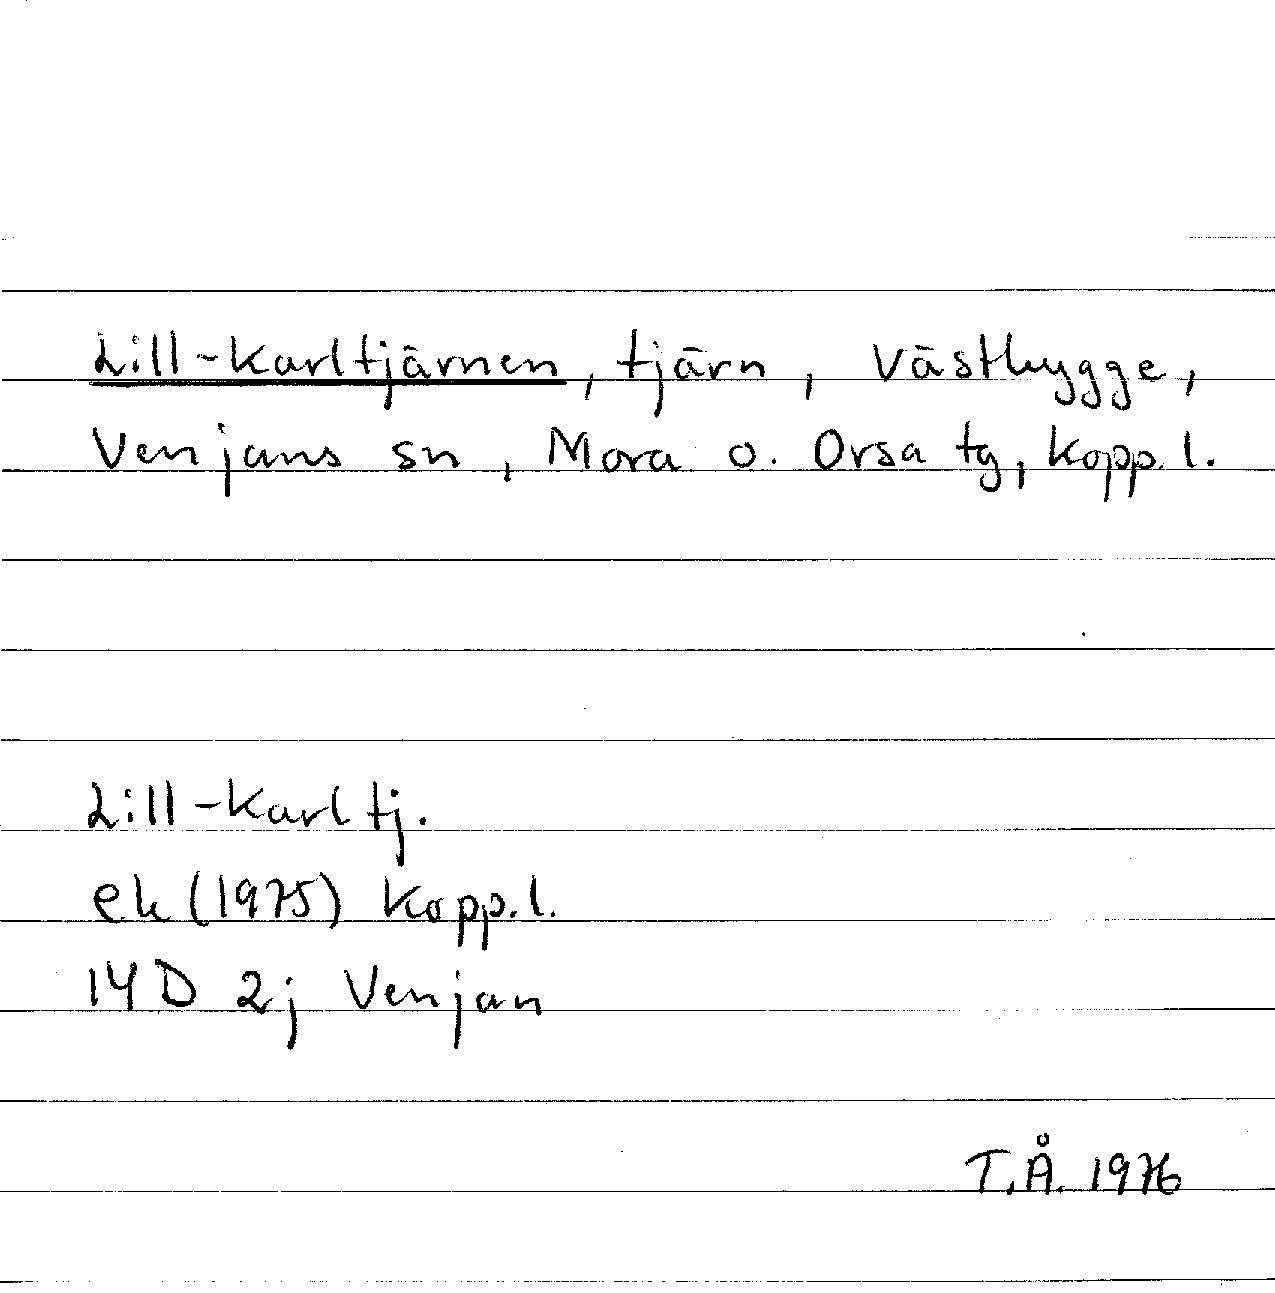 Lill-Karltjärnen, tjärn, Västbygge,
Venjans sn, Mora o. Orsa tg, Kopp. l.
Lill-Karltj.
ek (1975) Kopp. l.
14D 2j Venjan
T.Å. 1976